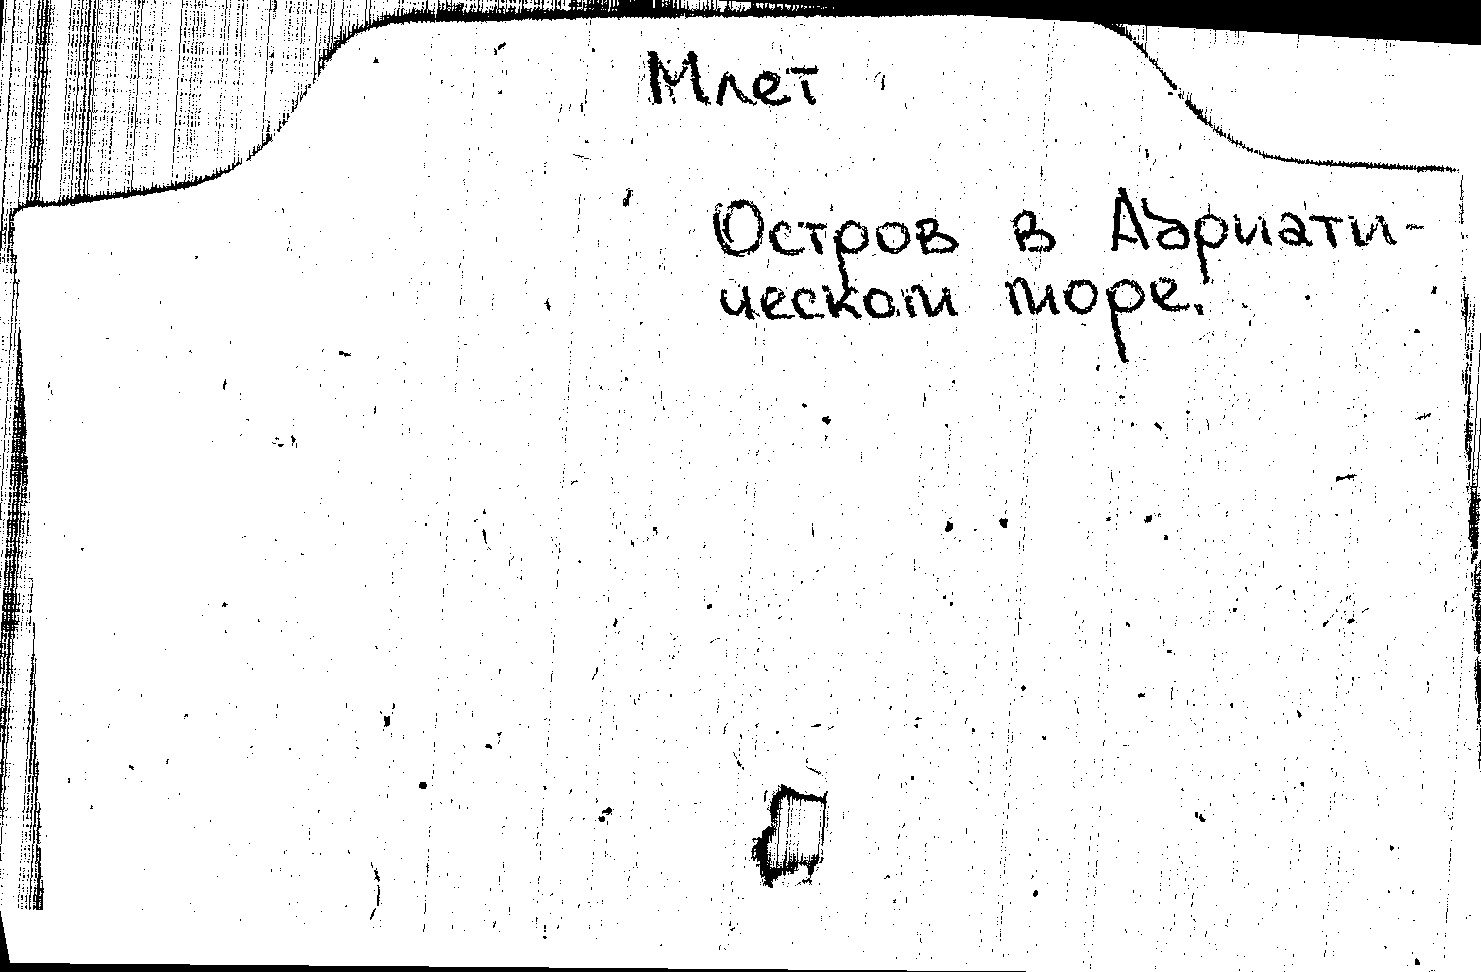 Млет
Остров в Адриати-
ческом море.